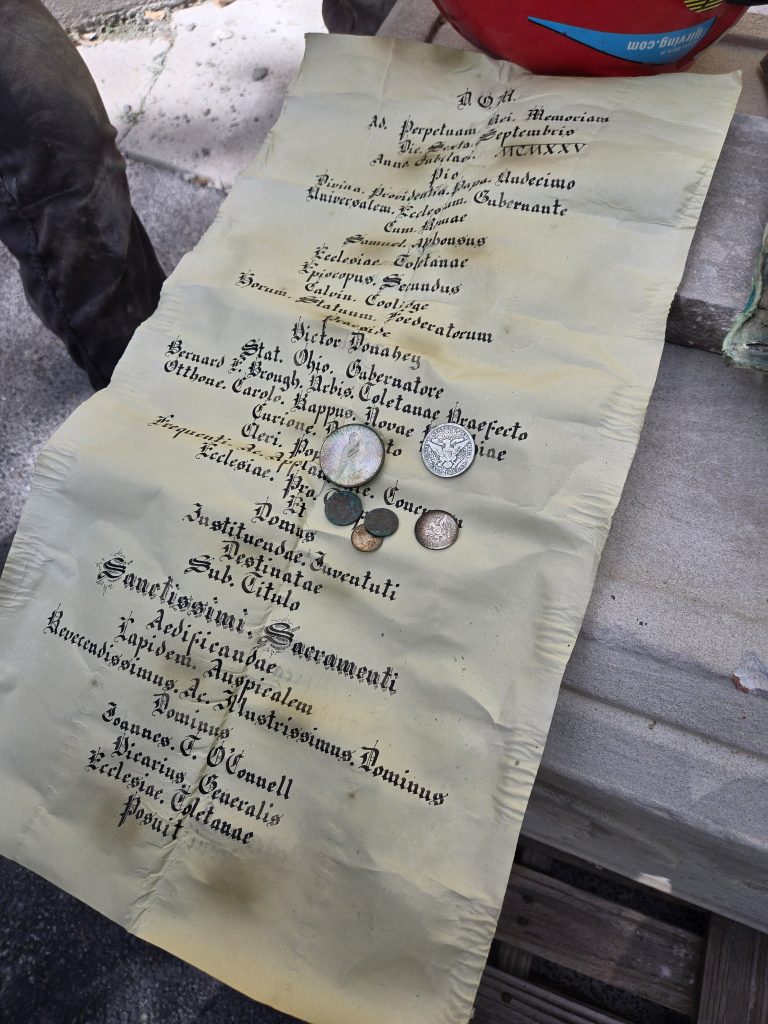 D. O. M.
Ad. Perpetuam Rei. Memoriam
Die. Sexta. Septembris
Anno. Jubilaei. MCMXXV
Pio
Divina. Providentia. Papa. Undecimo
Universalem. Ecclesiam. Gubernante
Cum. Romae
Samuel. Alphonsus
Ecclesiae Toletanae
Episcopus. Secundus
Calvin. Coolidge
Horum. Statuum. Foederatorum
Praeside
Victor Donahey
Stat. Ohio. Gubernatore
Bernard F. Brough. Urbis. Toletanae Praefecto
Otthone. Carolo. Rappus. Novae
Curione.
Cleri. Pop to
Frequenti. Ac.
Ecclesiae. Pro.
Et
Domus
Instituendae. Juventuti
Destinatae
Sub. Titulo
Sanctissimi. Sacramenti
Aedificandae
Lapidem. Auspicalem
Reverendissimus. Ac. Illustrissimus. Dominus
Dominus
Joannes. T. O'Connell
Vicarius. Generalis
Ecclesiae. Toletanae
Posuit